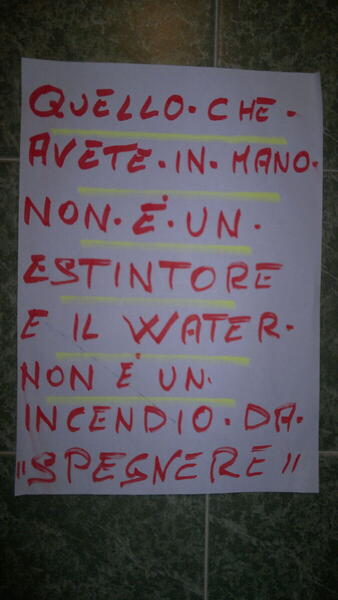 QUELLO·CHE·
AVETE·IN·MANO·
NON·È·UN·
ESTINTORE
E IL WATER·
NON È UN·
INCENDIO·DA·
"SPEGNERE"